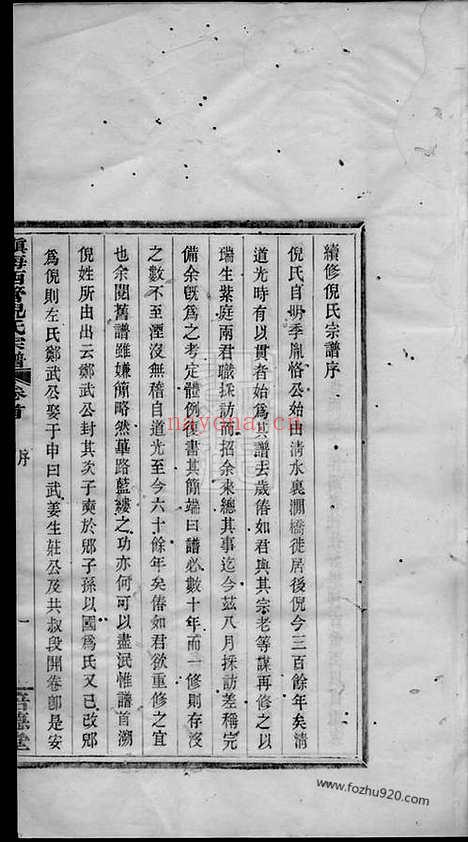 續修倪氏宗譜序
倪氏自明季胤恪公始由清水裏澗橋徙居後倪今三百餘年矣清
道光時有以貫者始為其譜去歲偆如君與其宗老等謀再修之以
瑞生紫庭兩君職採訪而招余來總其事迄今茲八月採訪差稱完
備余既為之考定體例復書其簡端曰譜必數十年而一修則存沒
之數不至湮沒無稽自道光至今六十餘年矣偆如君欲重修之宜
也余閱舊譜雖嫌簡略然蓽路藍縷之功亦何可以盡泯惟譜首溯
倪姓所由出云鄭武公封其次子奭於郳子孫以國為氏又已改郳
為倪則左氏鄭武公娶于申曰武姜生莊公及共叔段開卷即是安
鎮海西管倪氏宗譜
卷首
序
一
堂
nayona.cn
www.fozhu920.com